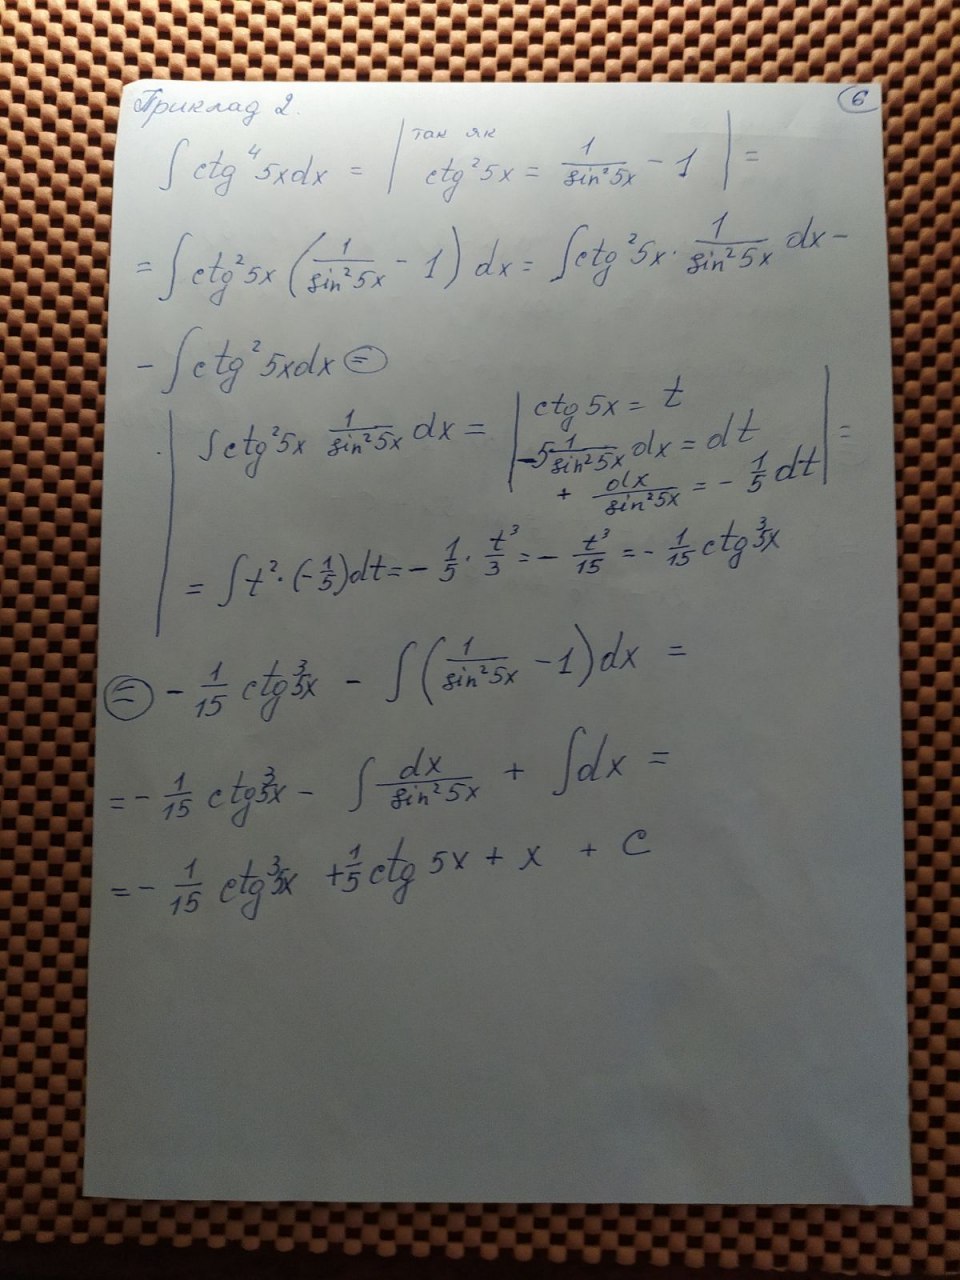 Приклад 2.
6
∫ ctg⁴ 5x dx = | так як ctg² 5x = 1/sin² 5x − 1 | =
= ∫ ctg² 5x (1/sin² 5x − 1) dx = ∫ ctg² 5x · 1/sin² 5x dx −
− ∫ ctg² 5x dx ⊜
| ∫ ctg² 5x 1/sin² 5x dx = | ctg 5x = t
−5 1/sin² 5x dx = dt
+ dx/sin² 5x = − 1/5 dt | =
= ∫ t² · (−1/5) dt = − 1/5 · t³/3 = − t³/15 = − 1/15 ctg³ 5x
⊜ − 1/15 ctg³ 5x − ∫ (1/sin² 5x − 1) dx =
= − 1/15 ctg³ 5x − ∫ dx/sin² 5x + ∫ dx =
= − 1/15 ctg³ 5x + 1/5 ctg 5x + x + C